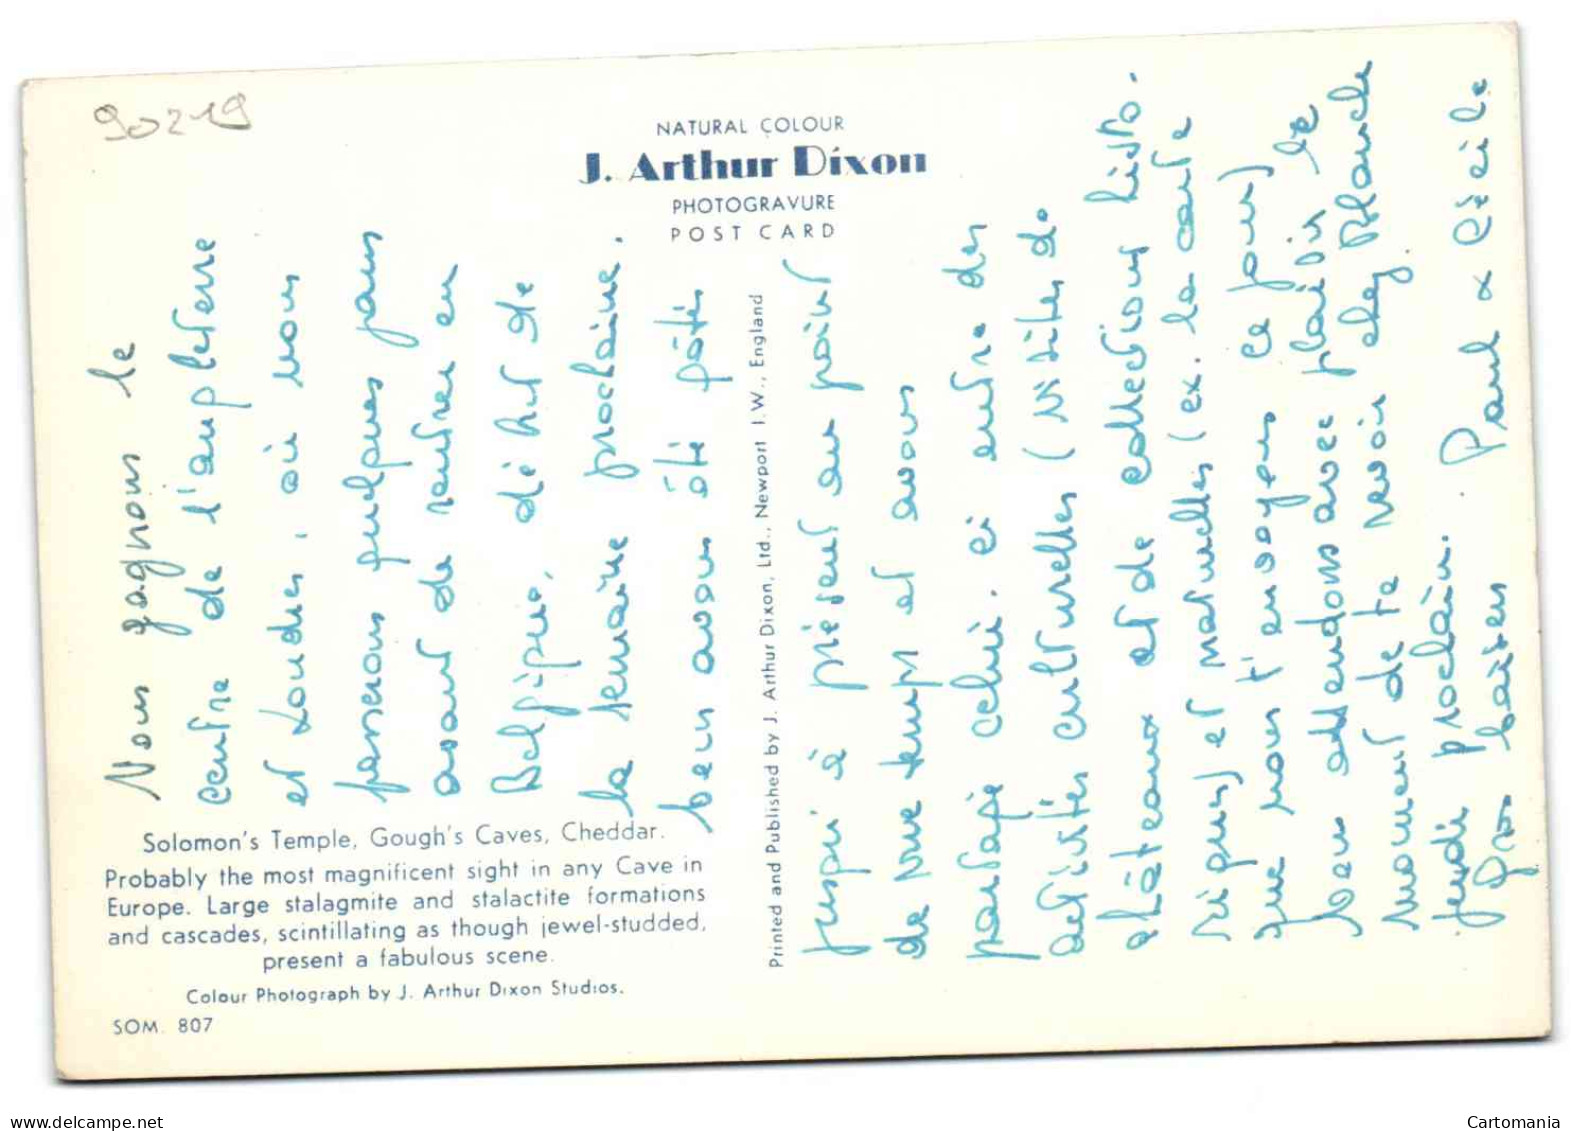 90219
NATURAL COLOUR
J. Arthur Dixon
PHOTOGRAVURE
POST CARD
Nous gagnons le
centre de l'angleterre
et Londres, où nous
passerons quelques jours
avant de rentrer en
Belgique, début de
la semaine prochaine.
beau avons été gâtés
jusqu'à présent au point
de vue temps et avons
partagé celui-ci entre des
activités culturelles (visites de
châteaux et de collections histo-
riques) et naturelles (ex. la carte
que nous t'envoyons ce jour)
bon attendons avec plaisir le
moment de te revoir chez Blanche
jeudi prochain.
Gros baisers Paul & Cécile
Printed and Published by J. Arthur Dixon, Ltd., Newport I.W., England
Solomon's Temple, Gough's Caves, Cheddar.
Probably the most magnificent sight in any Cave in
Europe. Large stalagmite and stalactite formations
and cascades, scintillating as though jewel-studded,
present a fabulous scene.
Colour Photograph by J. Arthur Dixon Studios.
SOM. 807
www.delcampe.net
Cartomania